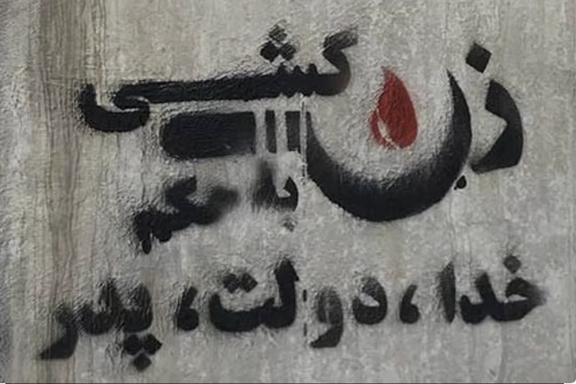 زن کشی
به حکم
خدا، دولت، پدر